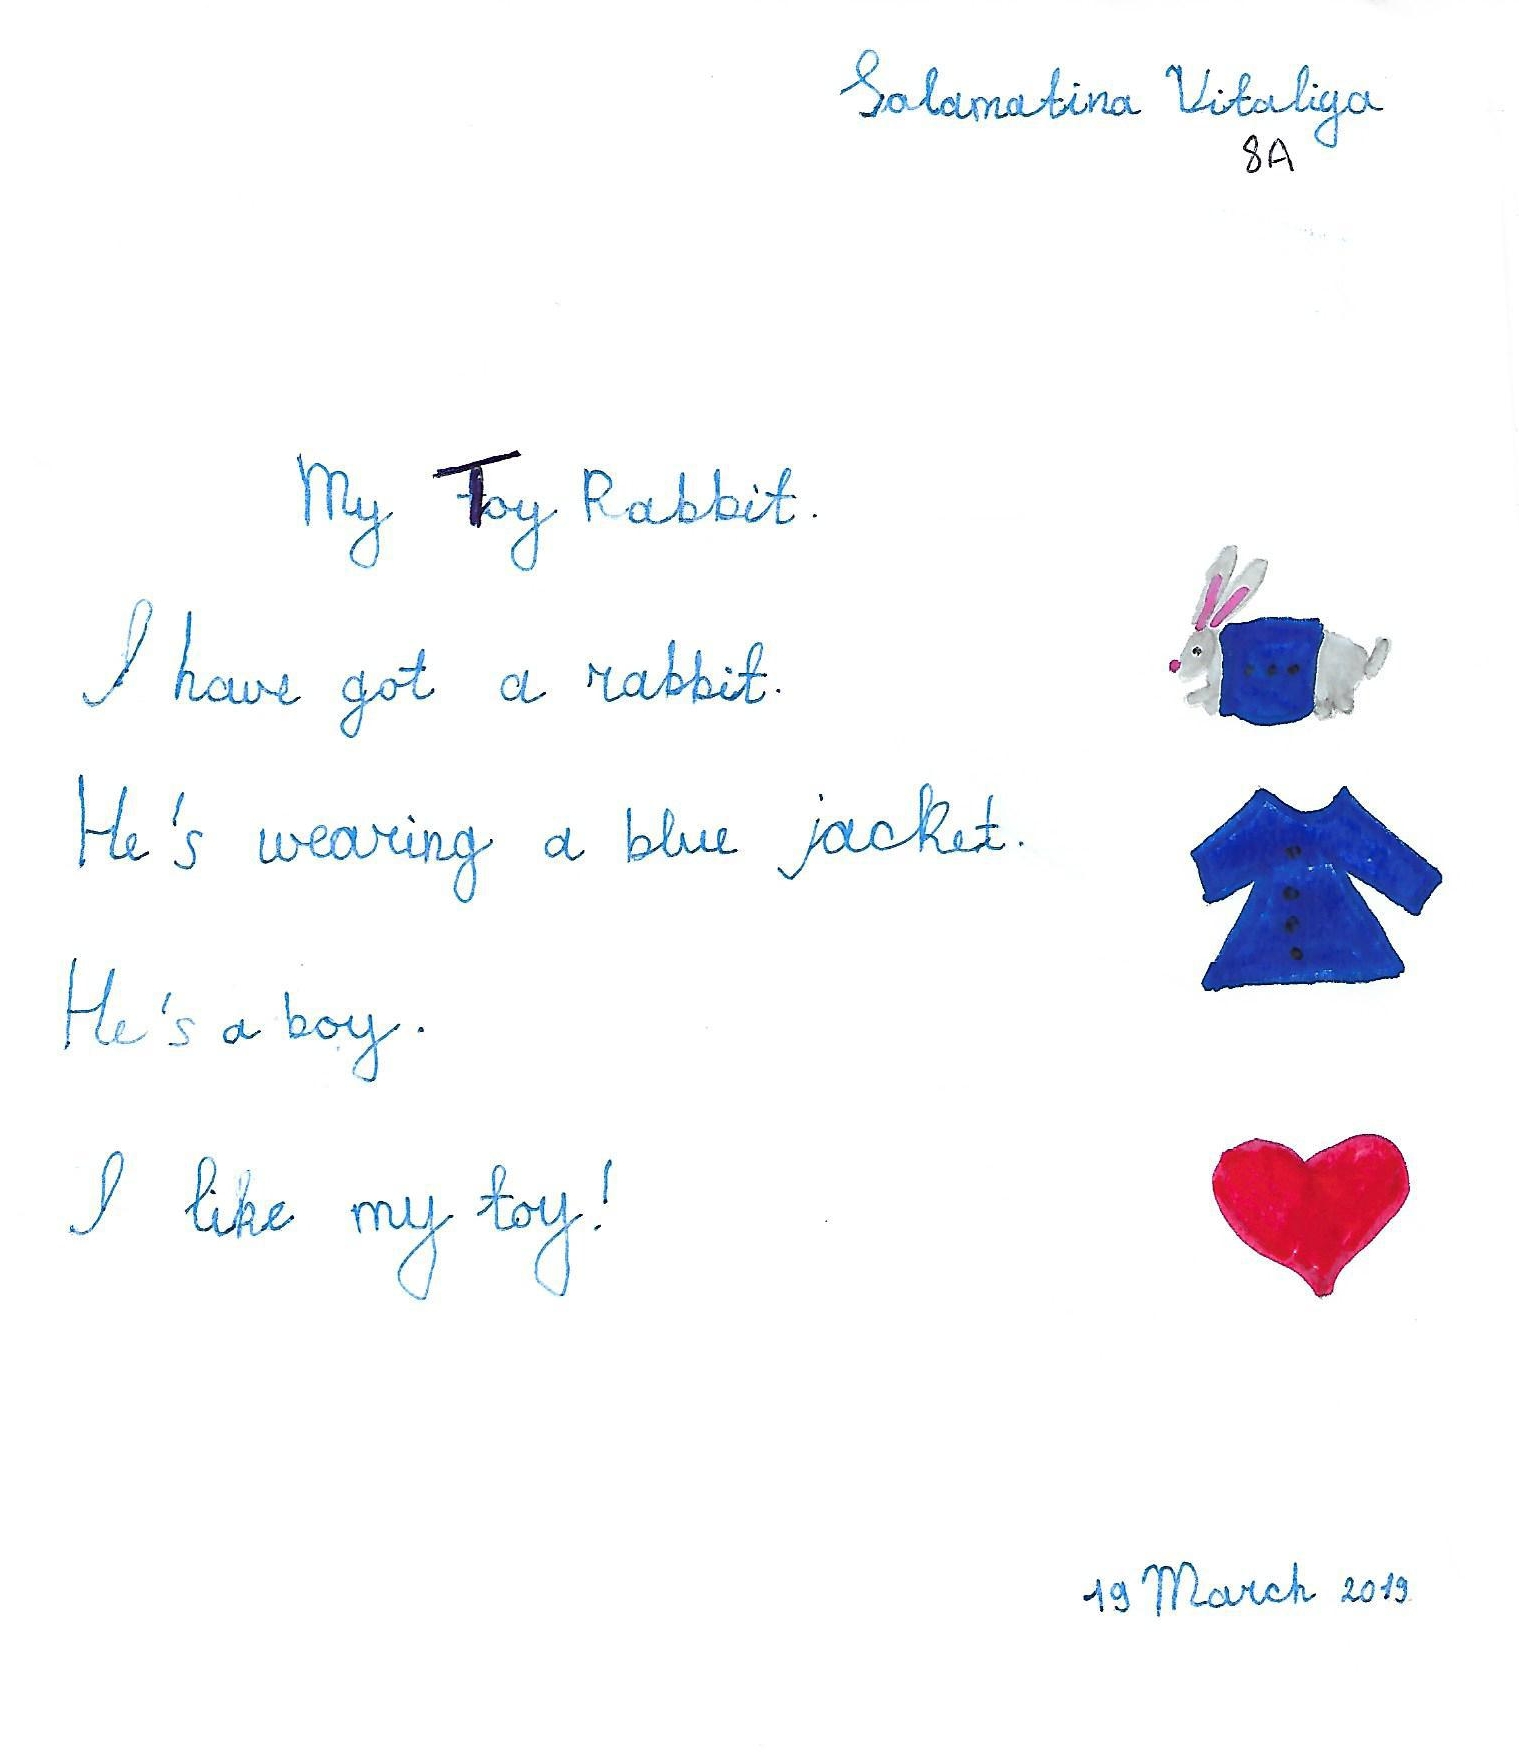 Salamatina Vitaliya
8A
My Toy Rabbit.
I have got a rabbit.
He's wearing a blue jacket.
He's a boy.
I like my toy!
19 March 2019